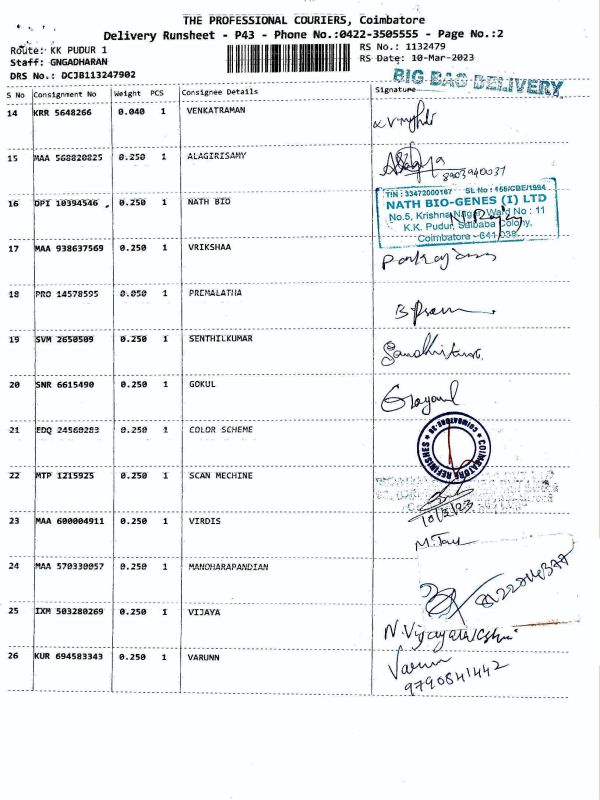 THE PROFESSIONAL COURIERS, Coimbatore
Delivery Runsheet - P43 - Phone No.:0422-3505555 - Page No.:2
Route: KK PUDUR 1
RS No.: 1132479
Staff: GNGADHARAN
RS Date: 10-Mar-2023
DRS No.: DCJB113247902
BIG BAG DELIVERY
S No Consignment No Weight PCS Consignee Details Signature
14 KRR 5648266 0.040 1 VENKATRAMAN
15 MAA 568820825 0.250 1 ALAGIRISAMY
8903940037
TIN : 33472000167 SL No : 166/CBE/1984
16 DPI 10394546 0.250 1 NATH BIO
NATH BIO-GENES (I) LTD
No.5, Krishna Nagar, Ward No : 11
K.K. Pudur, Saibaba Colony,
Coimbatore - 641 038.
17 MAA 938637569 0.250 1 VRIKSHAA
18 PRO 14578595 0.050 1 PREMALATHA
19 SVM 2650509 0.250 1 SENTHILKUMAR
20 SNR 6615490 0.250 1 GOKUL
21 EDQ 24560283 0.250 1 COLOR SCHEME
COIMBATORE REFINISHES
22 MTP 1215925 0.250 1 SCAN MECHINE
10/3/23
23 MAA 600004911 0.250 1 VIRDIS
24 MAA 570330057 0.250 1 MANOHARAPANDIAN
25 IXM 503280269 0.250 1 VIJAYA
N.Vijayalakshmi
26 KUR 694583343 0.250 1 VARUNN
Varunn
9790841442